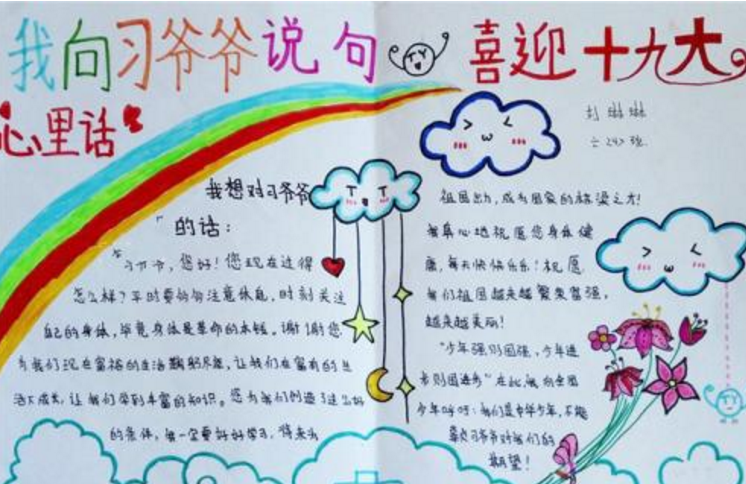 我向习爷爷说句
心里话
喜迎十九大
刘琳琳
六247班
我想对习爷爷
的话：
"习爷爷，您好！您现在过得
怎么样？平时要多多注意休息，时刻关注
自己的身体，毕竟身体是革命的本钱。谢谢您
为我们现在富裕的生活鞠躬尽瘁，让我们在富有的生
活下成长，让我们学到丰富的知识。您为我们创造了这么好
的条件，我一定要好好学习，将来为
祖国出力，成为国家的栋梁之才！
我真心地祝愿您身体健
康，每天快快乐乐！祝愿
我们祖国越来越繁荣富强，
越来越美丽！
"少年强则国强，少年进
步则国进步"在此，我向全国
少年呼吁：我们是中华少年，不能
辜负习爷爷对我们的
期望！